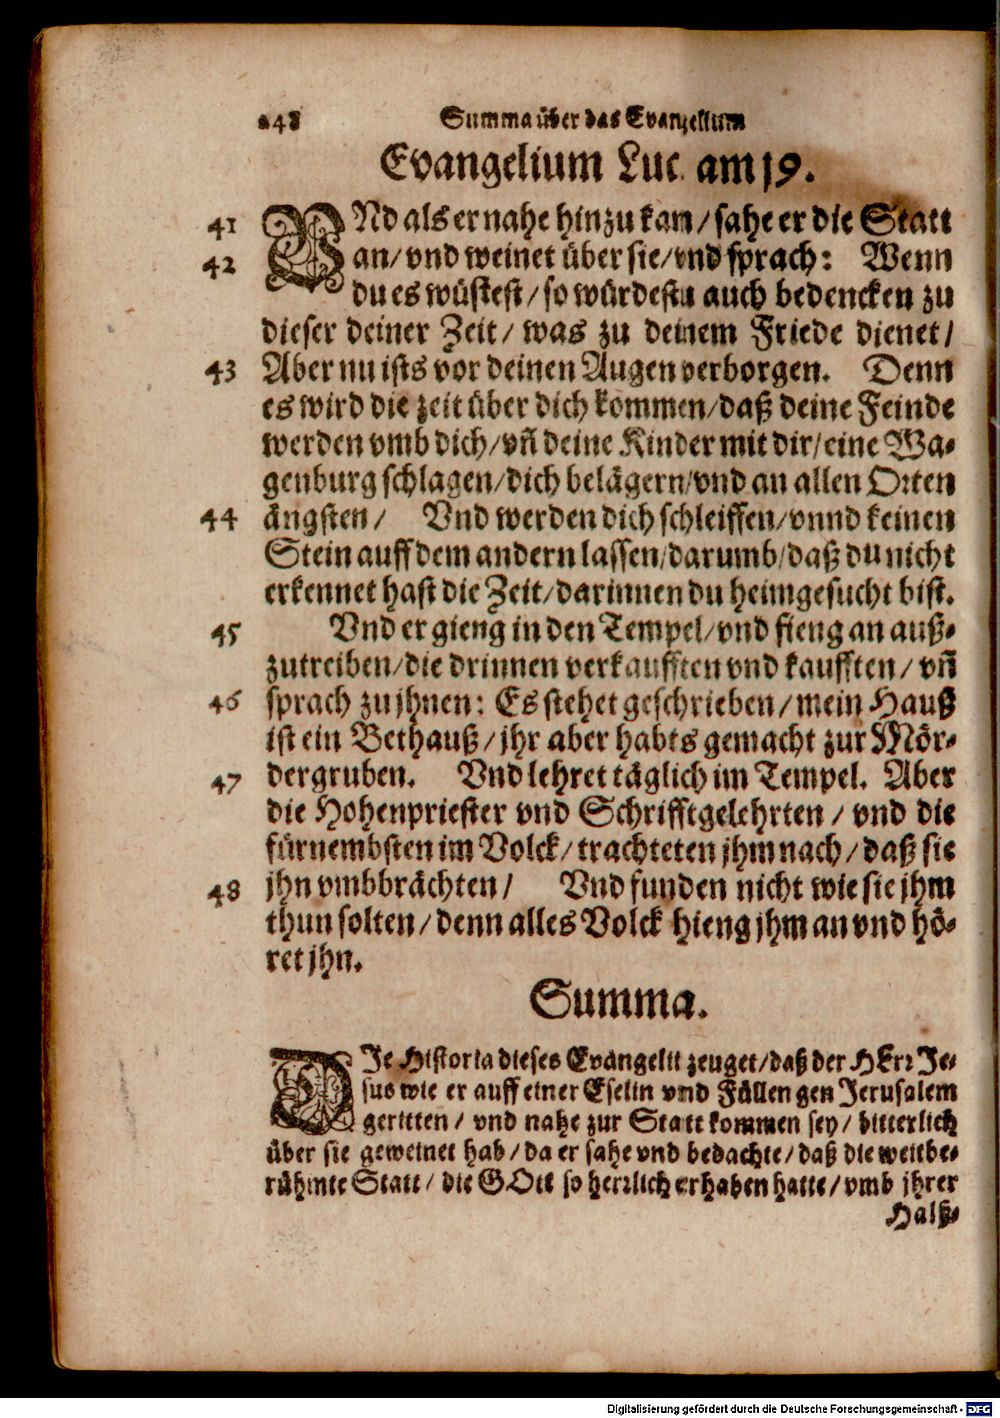 248 Summa über das Evangelium
Evangelium Luc. am 19.
41 VNd als er nahe hinzu kam/ sahe er die Statt
42 an/ vnd weinet über sie/ vnd sprach: Wenn
du es wüstest/ so würdestu auch bedencken zu
dieser deiner Zeit/ was zu deinem Friede dienet/
43 Aber nu ists vor deinen Augen verborgen. Denn
es wird die zeit über dich kommen/ daß deine Feinde
werden vmb dich/ vñ deine Kinder mit dir/ eine Wa-
genburg schlagen/ dich belägern/ vnd an allen Orten
44 ängsten/ Vnd werden dich schleiffen/ vnnd keinen
Stein auff dem andern lassen/ darumb/ daß du nicht
erkennet hast die Zeit/ darinnen du heimgesucht bist.
45 Vnd er gieng in den Tempel/ vnd fieng an auß-
zutreiben/ die drinnen verkaufften vnd kaufften/ vñ
46 sprach zu jhnen: Es stehet geschrieben/ mein Hauß
ist ein Bethauß/ jhr aber habts gemacht zur Mör-
47 dergruben. Vnd lehret täglich im Tempel. Aber
die Hohenpriester vnd Schrifftgelehrten/ vnd die
fürnembsten im Volck/ trachteten jhm nach/ daß sie
48 jhn vmbbrächten/ Vnd funden nicht wie sie jhm
thun solten/ denn alles Volck hieng jhm an vnd hö-
ret jhn.
Summa.
DJe Historia dieses Evangelii zeuget/ daß der HErr Je-
sus wie er auff einer Eselin vnd Füllen gen Jerusalem
geritten/ vnd nahe zur Statt kommen sey/ bitterlich
über sie geweinet hab/ da er sahe vnd bedachte/ daß die weitbe-
rühmte Statt/ die GOtt so herrlich erhaben hatte/ vmb jhrer
Halß-
Digitalisierung gefördert durch die Deutsche Forschungsgemeinschaft - DFG